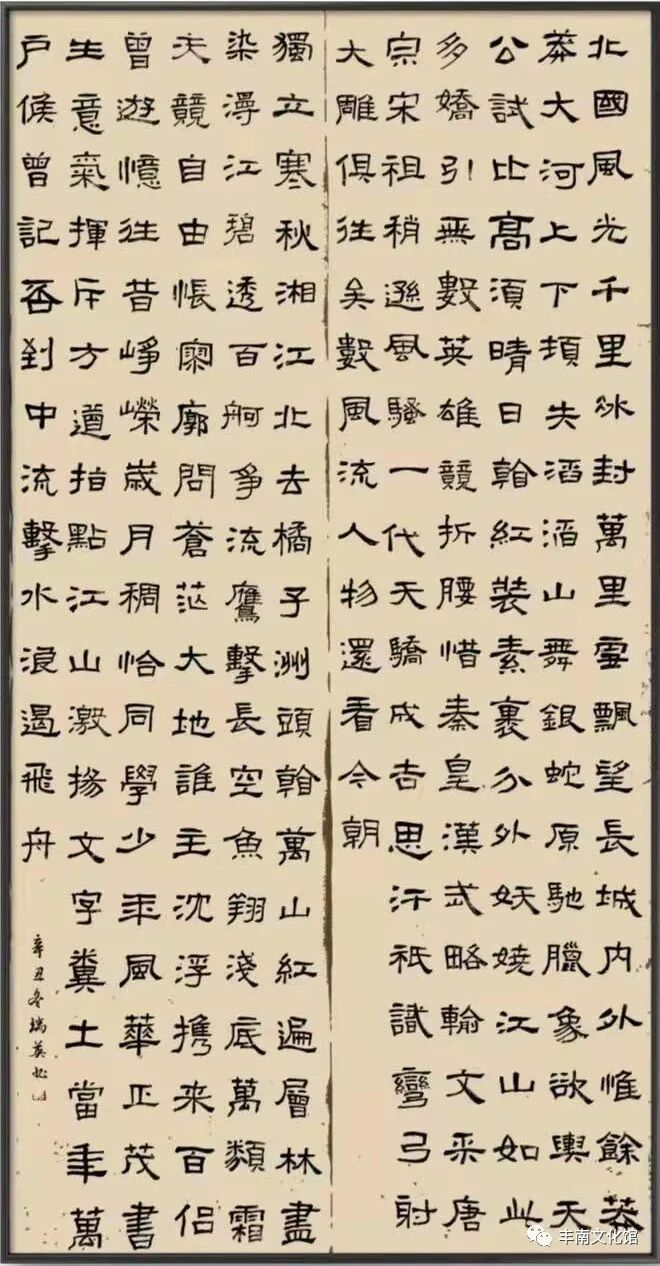 北國風光千里冰封萬里雪飄望長城内外惟餘莽
莽大河上下頓失滔滔山舞銀蛇原馳臘象欲輿天
公試比高須晴日翰紅裝素裹分外妖嬈江山如此
多嬌引無數英雄競折腰惜秦皇漢武略輸文采唐
宗宋祖稍遜風騷一代天驕成吉思汗祇識彎弓射
大雕俱往矣數風流人物還看今朝
獨立寒秋湘江北去橘子洲頭翰萬山紅遍層林盡
染漫江碧透百舸爭流鷹擊長空魚翔淺底萬類霜
天競自由悵寥廓問蒼茫大地誰主沈浮携来百侣
曾遊憶往昔崢嶸歲月稠恰同學少年風華正茂書
生意氣揮斥方遒指點江山激揚文字糞土當年萬
户侯曾記否到中流擊水浪遏飛舟
辛丑冬瑞英书
丰南文化馆